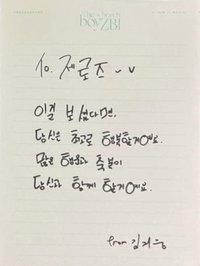 The beach
boyZB1
to. 제로즈
이걸 보셨다면,
당신은 최고로 행복할거에요.
많은 행운과 축복이
당신과 함께 할거에요.
from 김지웅